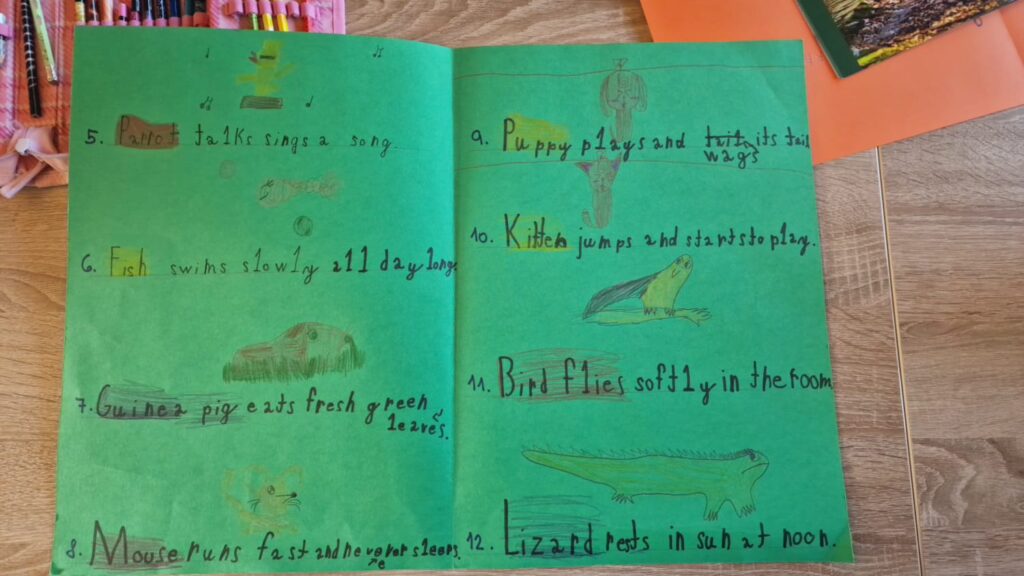 5. Parrot talks sings a song.
6. Fish swims slowly all day long.
7. Guinea pig eats fresh green
leaves.
8. Mouse runs fast and never sleeps.
9. Puppy plays and its tail
wags
10. Kitten jumps and starts to play.
11. Bird flies softly in the room
12. Lizard rests in sun at noon.